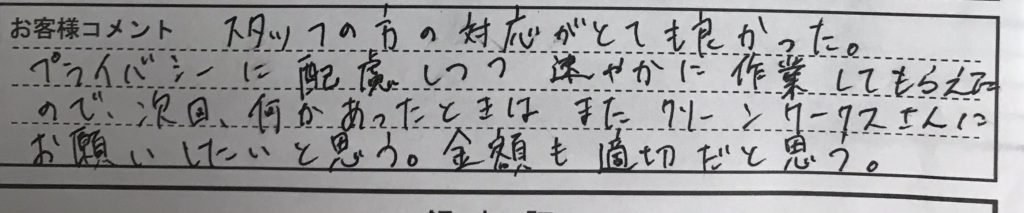 お客様コメント スタッフの方の対応がとても良かった。
プライバシーに配慮しつつ速やかに作業してもらえた
ので、次回、何かあったときはまたクリーンワークスさんに
お願いしたいと思う。金額も適切だと思う。